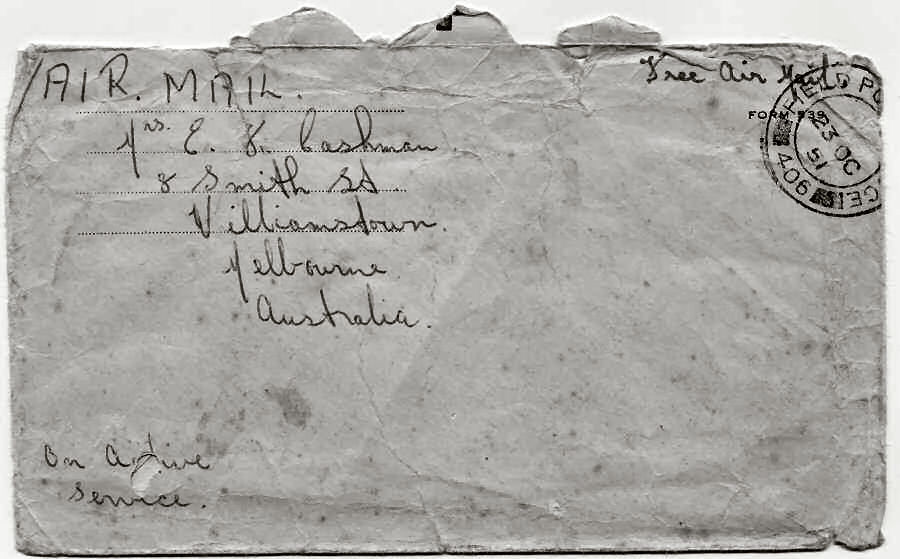 AIR. MAIL.
Free Air Mail
FORM 539
FIELD PO
23 OC
51
406
CE
Mrs. E. K. Cashman
8 Smith St.
Williamstown.
Melbourne
Australia.
On Active
Service.